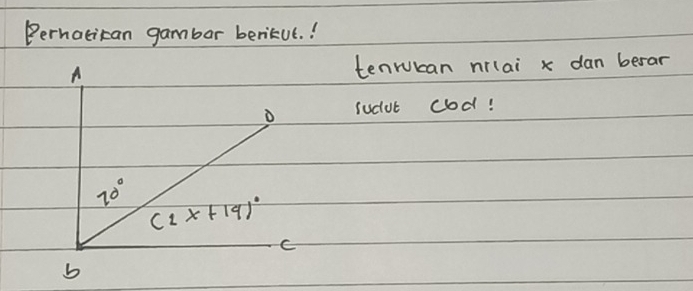 Perhatikan gambar berikut.!
A
tentukan nilai x dan besar
D
sudut Cbd !
70°
(2x+19)°
C
b